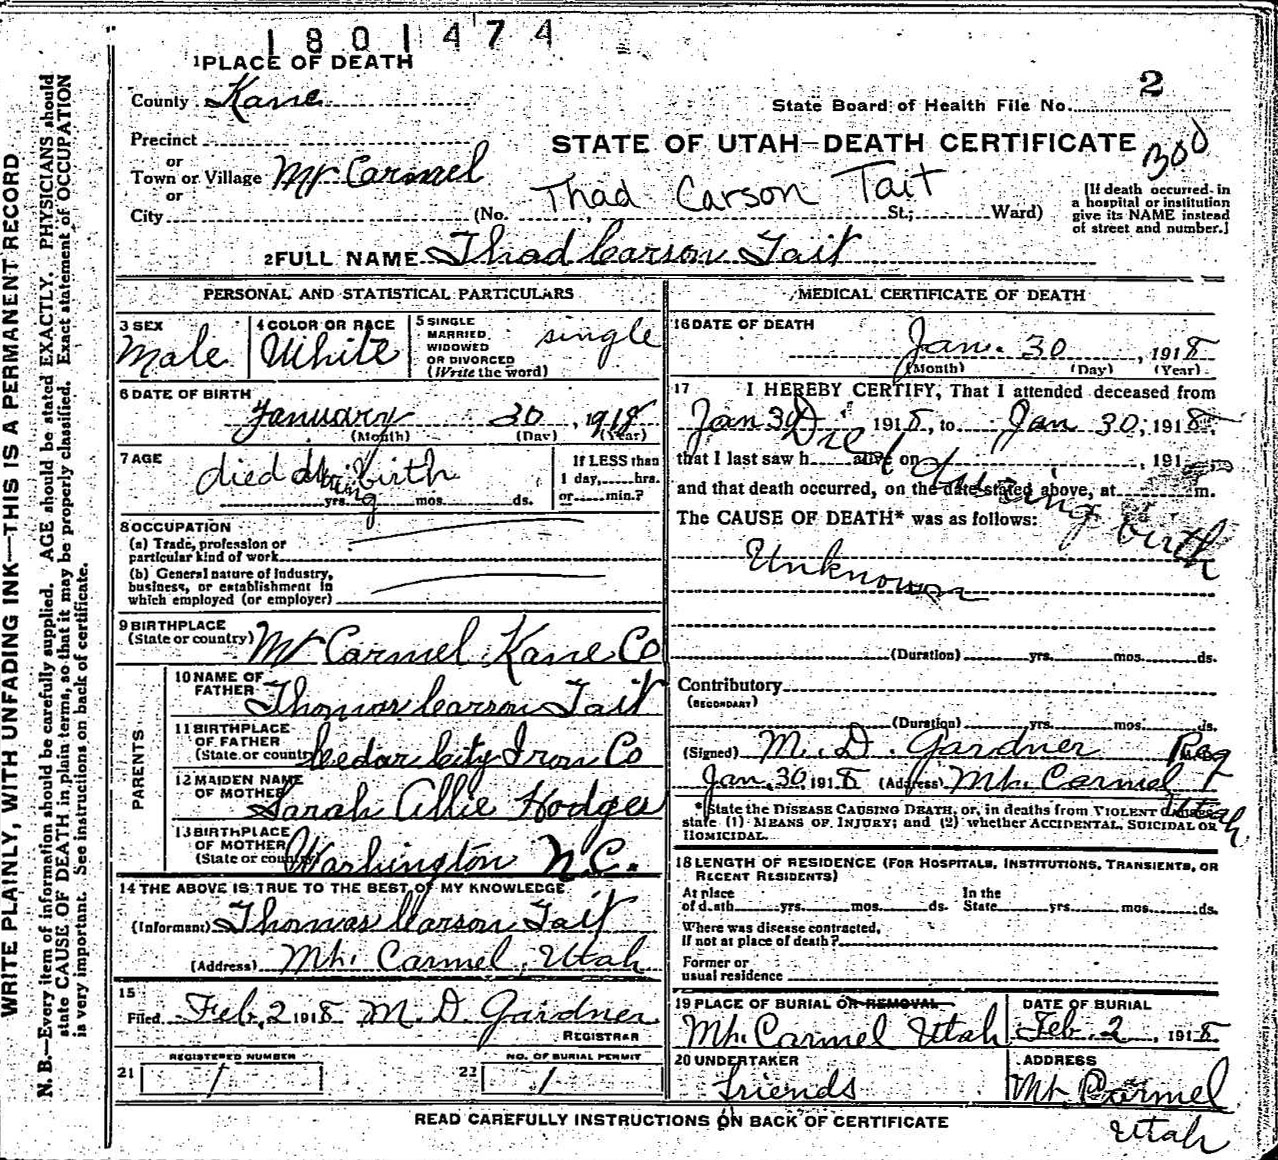 1801474
1 PLACE OF DEATH
County Kane
State Board of Health File No. 2
Precinct
STATE OF UTAH—DEATH CERTIFICATE
or
Town or Village Mt Carmel
or
Thad Carson Tait
City (No. St.; Ward)
[If death occurred in
a hospital or institution
give its NAME instead
of street and number.]
2 FULL NAME Thad Carson Tait
PERSONAL AND STATISTICAL PARTICULARS
3 SEX
Male
4 COLOR OR RACE
White
5 SINGLE
MARRIED
WIDOWED
OR DIVORCED
(Write the word)
single
6 DATE OF BIRTH
January 30, 1918
(Month) (Day) (Year)
7 AGE
died during birth
yrs. mos. ds.
If LESS than
1 day, hrs.
or min.?
8 OCCUPATION
(a) Trade, profession or
particular kind of work
(b) General nature of industry,
business, or establishment in
which employed (or employer)
9 BIRTHPLACE
(State or country) Mt Carmel Kane Co
PARENTS
10 NAME OF
FATHER Thomas Carson Tait
11 BIRTHPLACE
OF FATHER
(State or country) Cedar City Iron Co
12 MAIDEN NAME
OF MOTHER Sarah Allie Hodges
13 BIRTHPLACE
OF MOTHER
(State or country) Washington N.C.
14 THE ABOVE IS TRUE TO THE BEST OF MY KNOWLEDGE
(Informant) Thomas Carson Tait
(Address) Mt. Carmel, Utah
15
Filed Feb. 2 1918 M. D. Gardner
REGISTRAR
REGISTERED NUMBER
21 1
NO. OF BURIAL PERMIT
22 1
MEDICAL CERTIFICATE OF DEATH
16 DATE OF DEATH
Jan. 30, 1918
(Month) (Day) (Year)
17 I HEREBY CERTIFY, That I attended deceased from
Jan 30 1918, to Jan 30, 1918,
that I last saw h alive on , 191
Died during birth
and that death occurred, on the date stated above, at m.
The CAUSE OF DEATH* was as follows:
Unknown
(Duration) yrs. mos. ds.
Contributory
(SECONDARY)
(Duration) yrs. mos. ds.
(Signed) M. D. Gardner Reg
Jan. 30, 1918 (Address) Mt. Carmel
Utah
*State the DISEASE CAUSING DEATH, or, in deaths from VIOLENT CAUSES,
state (1) MEANS OF INJURY; and (2) whether ACCIDENTAL, SUICIDAL OR
HOMICIDAL.
18 LENGTH OF RESIDENCE (FOR HOSPITALS, INSTITUTIONS, TRANSIENTS, OR
RECENT RESIDENTS)
At place
of death yrs. mos. ds.
In the
State yrs. mos. ds.
Where was disease contracted,
if not at place of death?
Former or
usual residence
19 PLACE OF BURIAL OR REMOVAL
Mt. Carmel Utah
DATE OF BURIAL
Feb. 2, 1918
20 UNDERTAKER
friends
ADDRESS
Mt. Carmel
Utah
READ CAREFULLY INSTRUCTIONS ON BACK OF CERTIFICATE
WRITE PLAINLY, WITH UNFADING INK—THIS IS A PERMANENT RECORD
N. B.—Every item of information should be carefully supplied. AGE should be stated EXACTLY. PHYSICIANS should
state CAUSE OF DEATH in plain terms, so that it may be properly classified. Exact statement of OCCUPATION
is very important. See instructions on back of certificate.